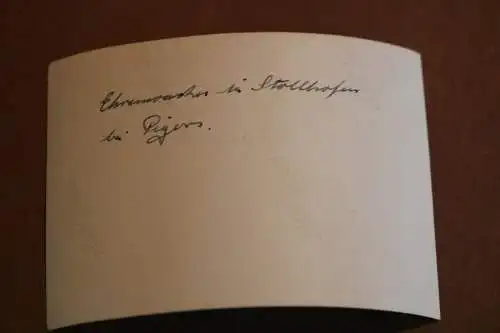 Ehrenwache in Stollhofen
bei Pigers.